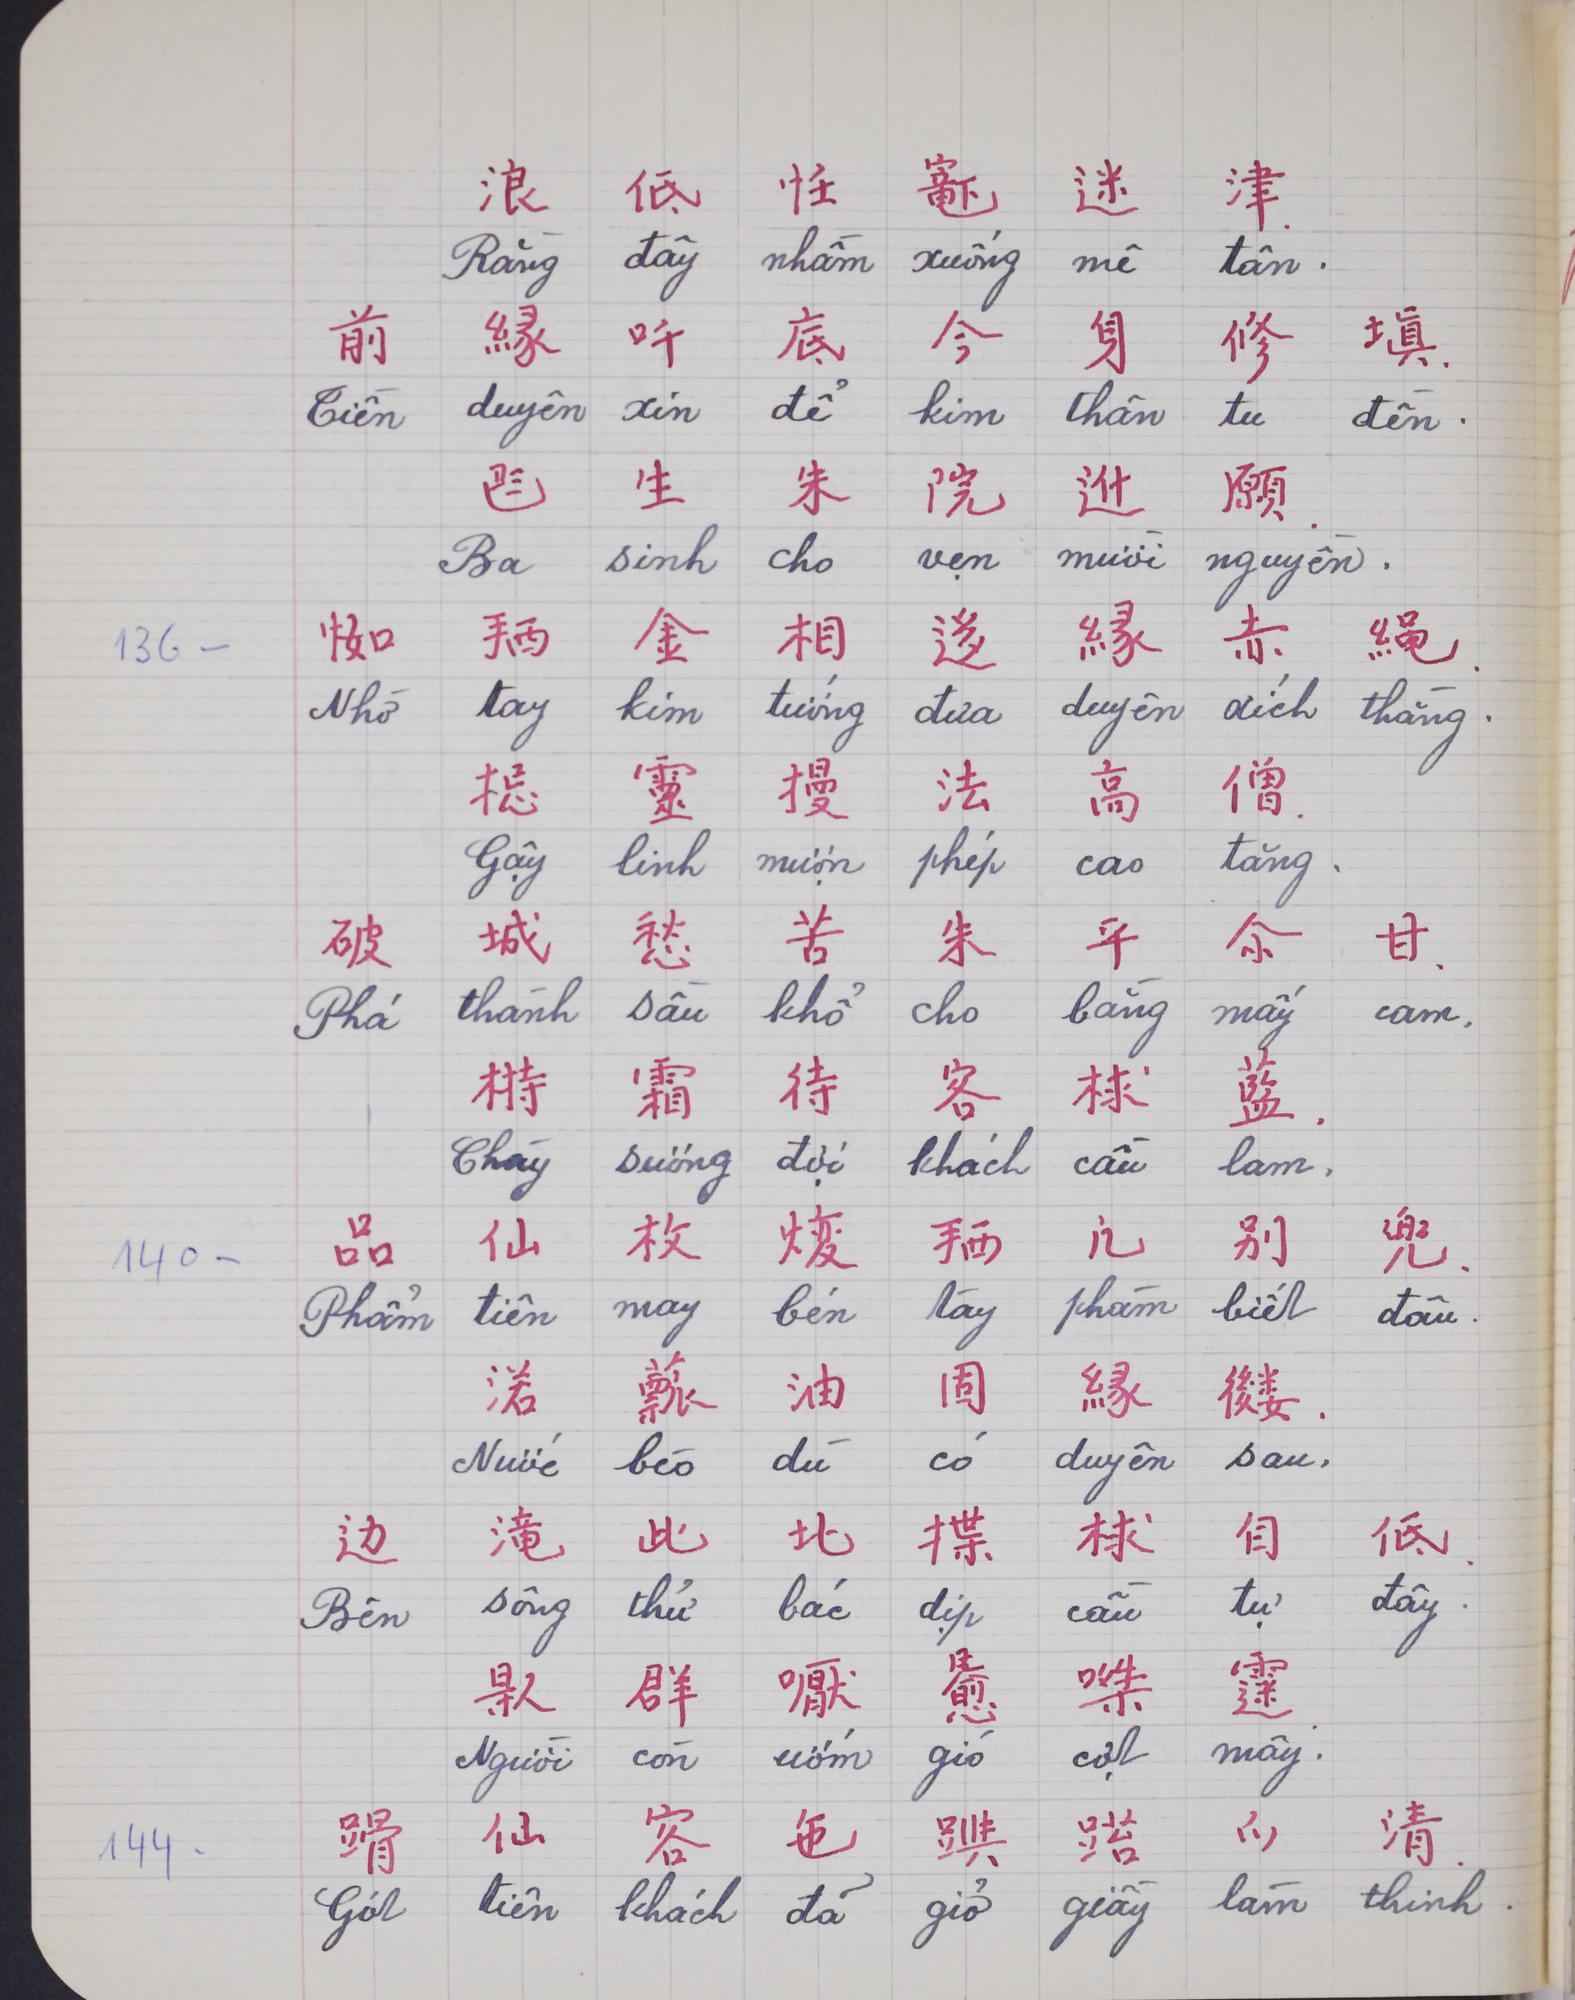 浪 低 恁 𥨨 迷 津.
Rằng đây nhầm xuống mê tân.
前 縁 吀 底 今 身 修 塡.
Tiền duyên xin để kim thân tu đền.
𠀧 生 朱 院 𨑮 願.
Ba sinh cho vẹn mười nguyền.
136 - 㤶 𢬣 金 相 迻 縁 赤 繩.
Nhờ tay kim tướng đưa duyên xích thằng.
靈 摱 法 高 僧.
Gậy linh mượn phép cao tăng.
破 城 愁 苦 朱 平 尒 甘.
Phá thành sầu khổ cho bằng mấy cam.
霜 待 客 梂 藍.
Chày sương đợi khách cầu lam.
140 - 品 仙 枚 㷫 𢬣 凡 别 兜.
Phẩm tiên may bén tay phàm biết đâu.
渃 油 固 縁 𡢐.
Nước bèo dù có duyên sau.
边 滝 此 北 揲 梂 自 低.
Bên sông thử bác dịp cầu tự đây.
𠊛 群 嚈 𩙍 㗎 𩄲.
Người còn ướm gió cợt mây.
144 - 仙 客 㐌 清.
Gót tiên khách đã giở giầy làm thinh.